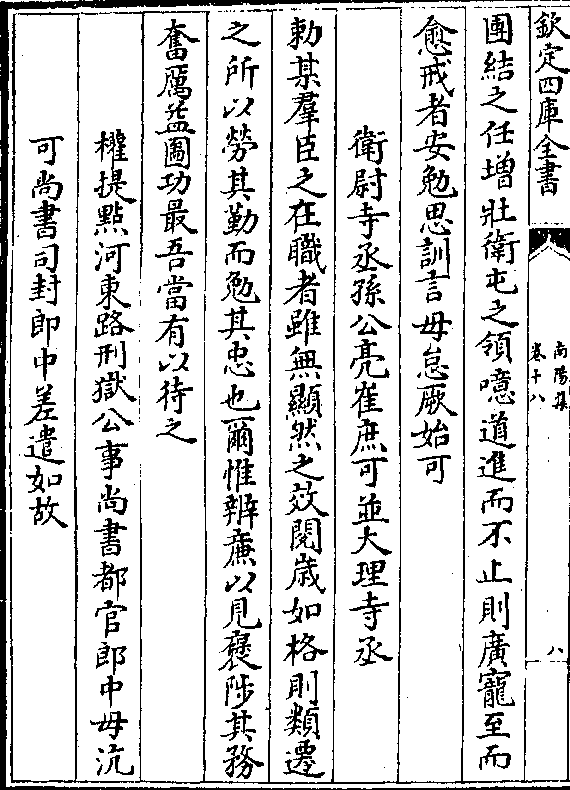 欽定四庫全書
南陽集
卷十八
八
團結之任增壯衛屯之領噫道進而不止則廣寵至而
愈戒者安勉思訓言毋怠厥始可
衛尉寺丞孫公亮崔庶可並大理寺丞
勅某羣臣之在職者雖無顯然之效閱歳如格則類遷
之所以勞其勤而勉其忠也爾惟辨亷以見襃陟其務
奮厲益圖功最吾當有以待之
權提㸃河東路刑獄公事尚書都官郎中毋沆
可尚書司封郎中差遣如故